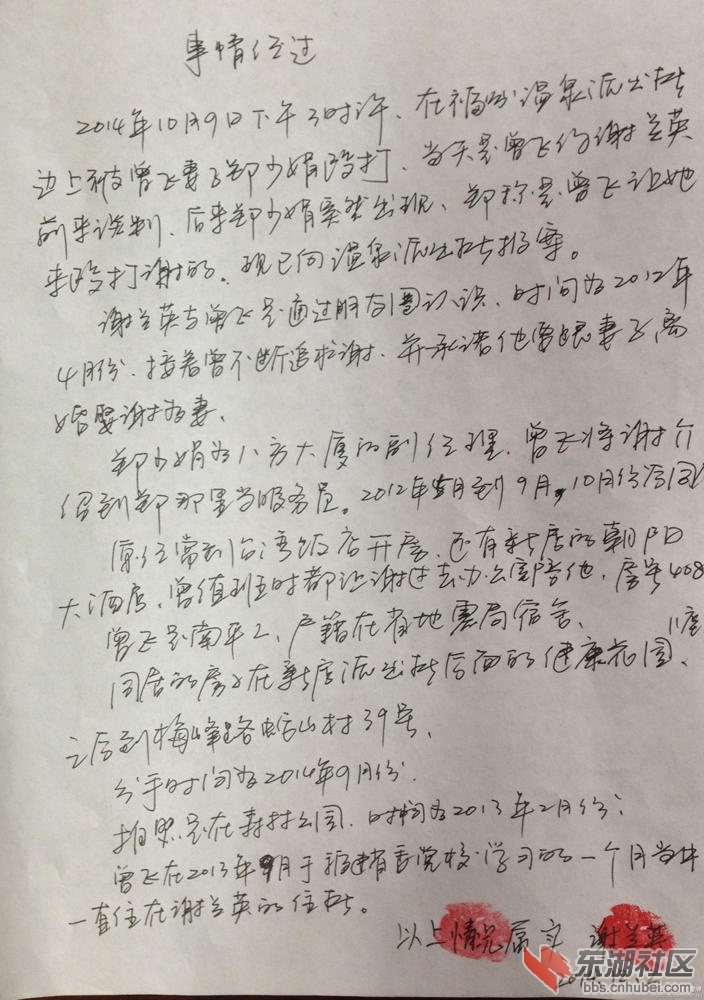 事情经过
2014年10月9日下午3时许、在福州温泉派出所
边上被曾飞妻子郑少娟殴打、当天是曾飞约谢兰英
前来谈判、后来郑少娟突然出现、郑称是曾飞让她
来殴打谢的。现已向温泉派出所报案。
谢兰英与曾飞是通过朋友圈认识、时间为2012年
4月份、接着曾不断追求谢、并承诺他会跟妻子离
婚娶谢为妻、
郑少娟为八方大厦的副经理、曾飞将谢介
绍到郑那里当服务员。2012年 月到9月、10月份
原经常到台湾饭店开房、还有新店的朝阳
大酒店、曾值班时都让谢过去办公室陪他、房号408
曾飞是南平人、户籍在省地震局宿舍、
同居的房子在新店派出所后面的健康花园、11座
之后到梅峰路 山村39号、
分手时间为2014年9月份.
拍照是在森林公园、时间为2013年2月份;
曾飞在2013年9月于福建省委党校学习的一个月当中
一直住在谢兰英的住所。
以上情况属实 谢兰英
东湖社区
bbs.cnhubei.com